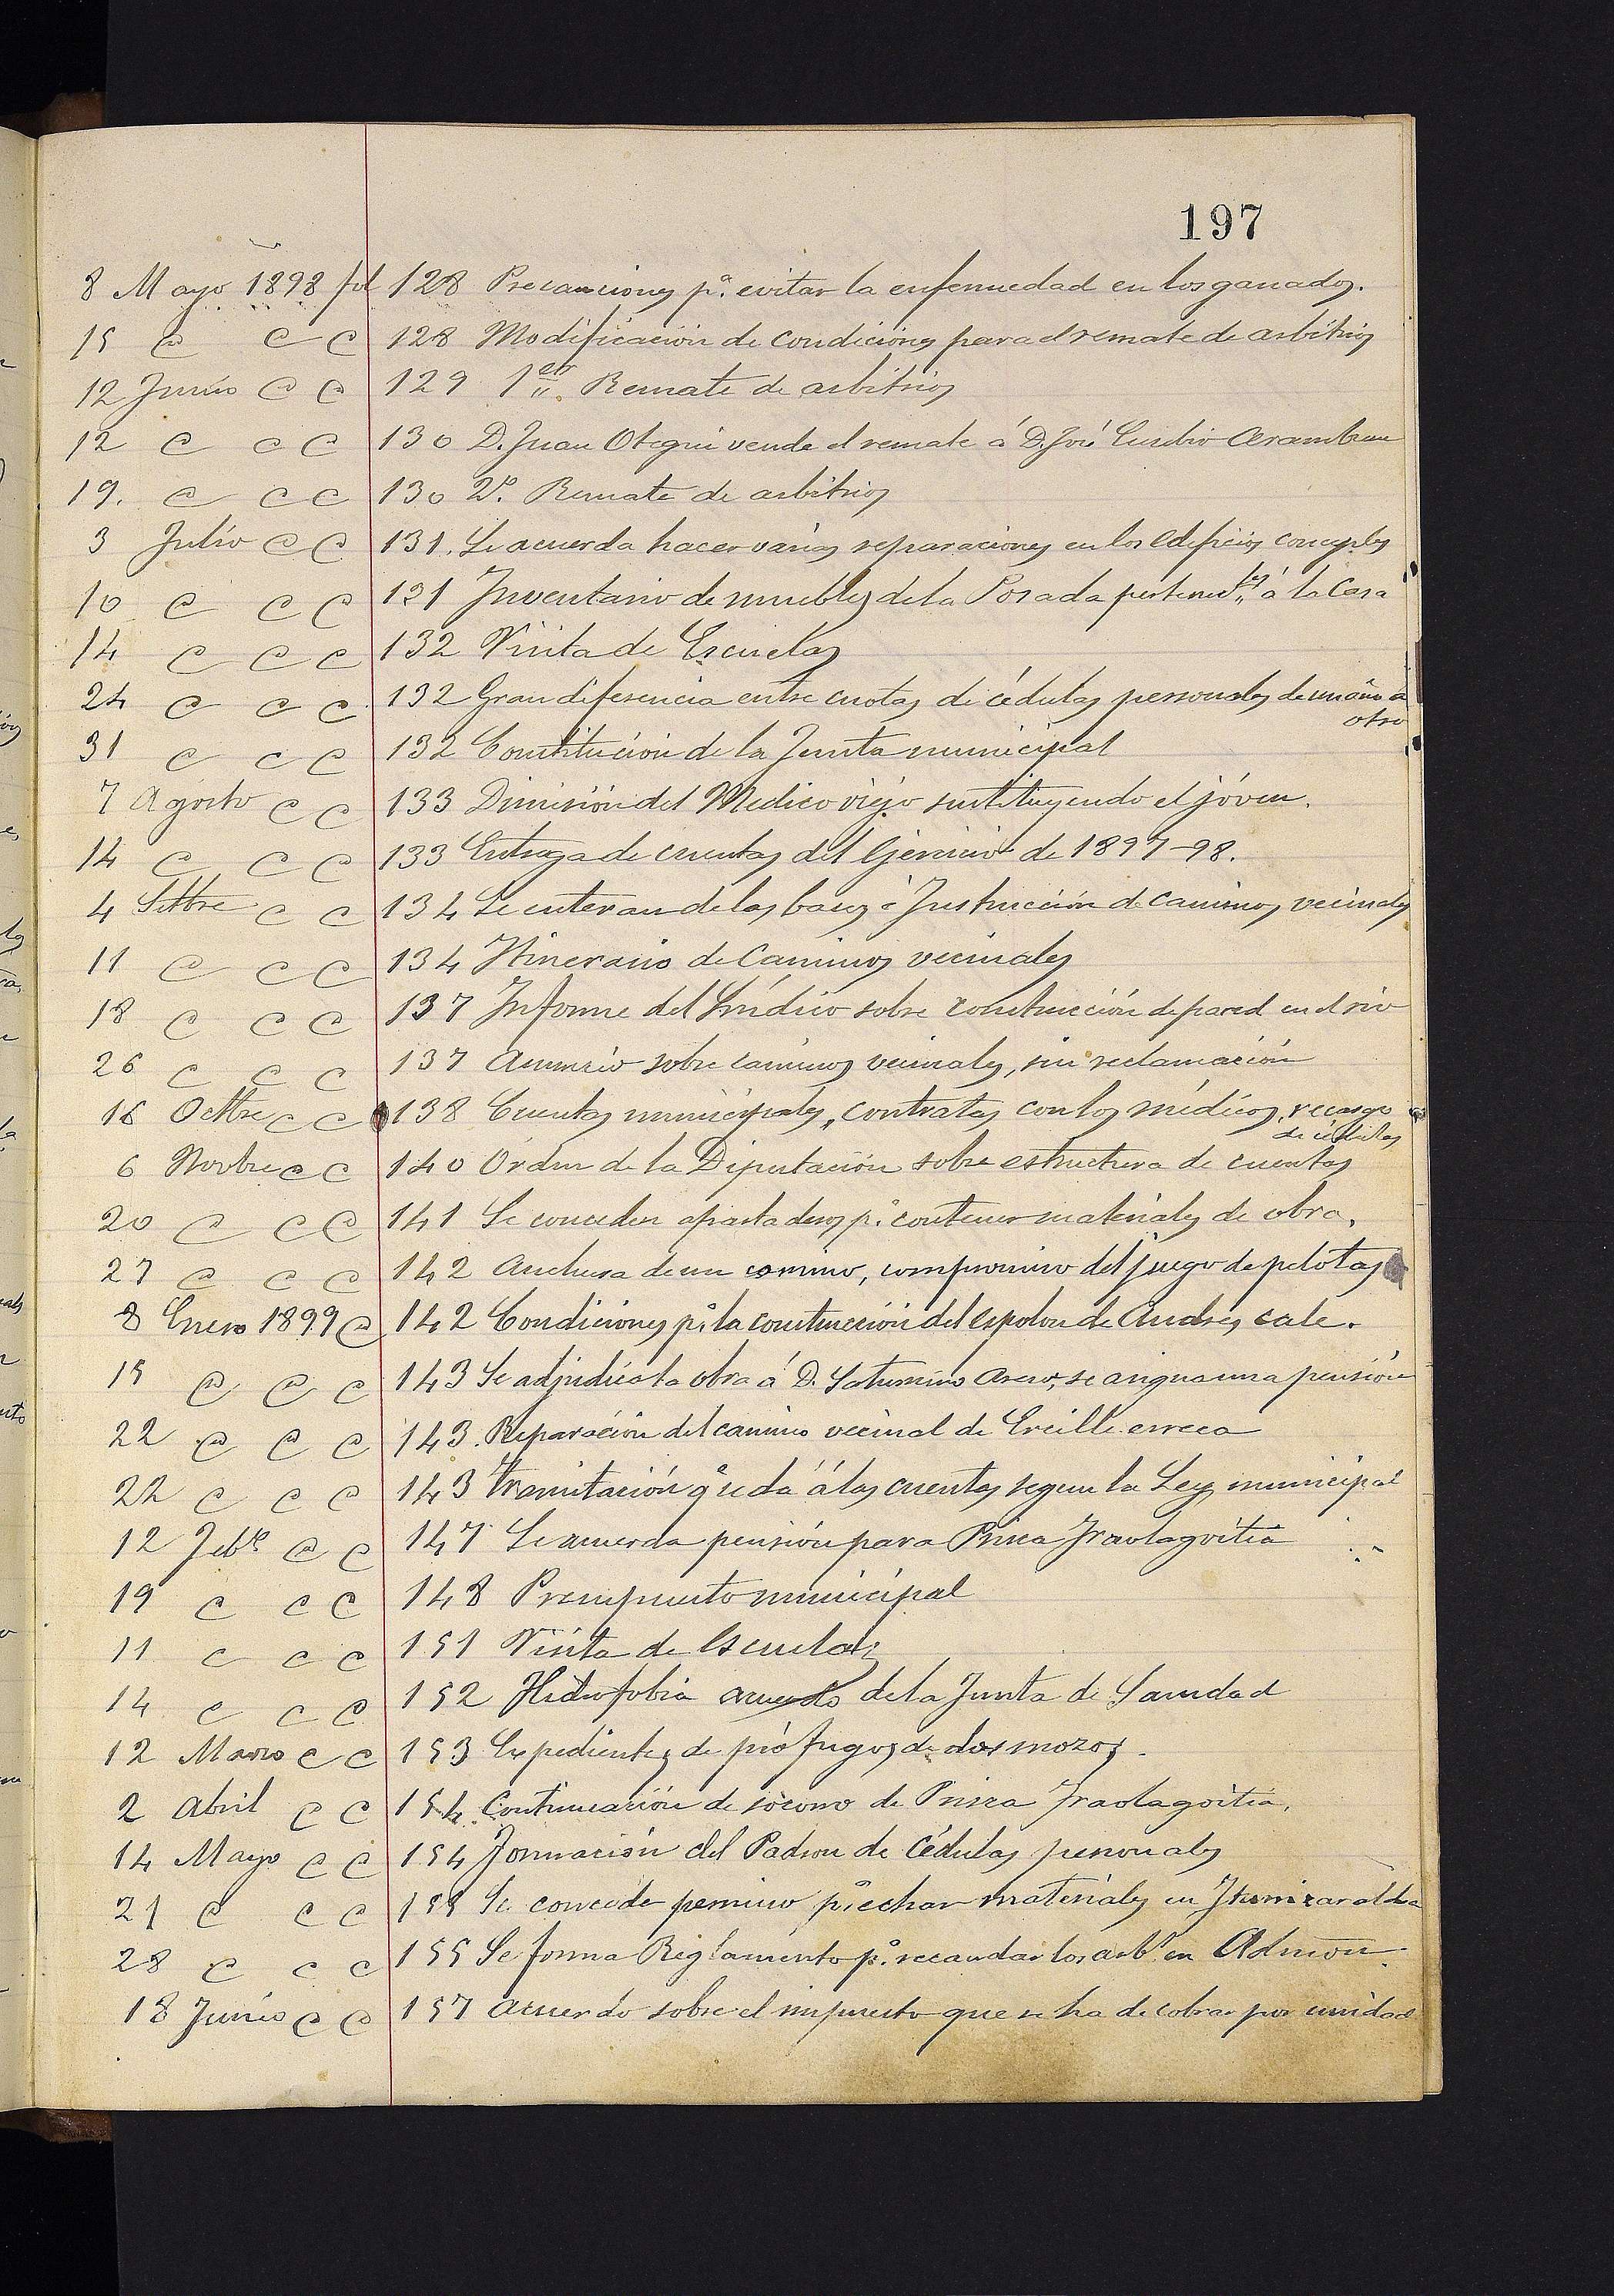 197
8 Mayo 1898 fol 128 Precauciones pª. evitar la enfermedad en los ganados.
15 " " " 128 Modificación de condiciones para el remate de arbitrios
12 Junio " " 129 1er. Remate de arbitrios
12 " " " 130 D. Juan Otegui vende el remate á D. José Eusebio Aramburu
19. " " " 130 2º. Remate de arbitrios
3 Julio " " 131. Se acuerda hacer varias reparaciones en los edificios concejales
10 " " " 131 Inventario de muebles de la Posada pertenectes á la Casa
14 " " " 132 Visita de Escuelas
24 " " " 132 Gran diferencia entre cuotas de cédulas personales de un año a
otro
31 " " " 132 Constitución de la Junta municipal
7 Agosto " " 133 Dimisión del Medico viejo sustituyendo el jóven.
14 " " " 133 Entrega de cuentas del Ejercicio de 1897-98.
4 Setbre " " 134 Se enteran de las bases é Instrucción de caminos vecinales
11 " " " 134 Itinerario de Caminos vecinales
18 " " " 137 Informe del Síndico sobre construcción de pared en el rio
26 " " " 137 Anuncio sobre caminos vecinales, sin reclamación
16 Octbre " " 138 Cuentas municipales, contratas con los médicos, recargo
de cédulas
6 Novbre " " 140 Órden de la Diputación sobre estructura de cuentas
20 " " " 141 Se conceden apartaderos pª. contener materiales de obra.
27 " " " 142 Anchura de un camino, compromiso del juego de pelotas
8 Enero 1899 " 142 Condiciones pª. la construcción del espolon de Andres cale.
15 " " " 143 Se adjudica la obra á D. Saturnino, se asigna una pensión
22 " " " 143. Reparación del camino vecinal de Ercille erreca
22 " " " 143 Tramitación q. se dá á las cuentas segun la Ley municipal
12 Febº " " 147 Se acuerda pensión para Prisca Iraolagoitia
19 " " " 148 Presupuesto municipal
11 " " " 151 Visita de escuelas
14 " " " 152 Hidrofobia acuerdo de la Junta de Sanidad
12 Marzo " " 153 Expedientes de prófugos de dos mozos.
2 Abril " " 154 Continuación de socorro de Prisca Iraolagoitia.
14 Mayo " " 154 Formación del Padron de Cédulas personales
21 " " " 155 Se concede permiso pª. echar materiales en Iturrizaralde
28 " " " 155 Se forma Reglamento pª. recaudar los arbs. en Admon.
18 Junio " " 157 Acuerdo sobre el impuesto que se ha de cobrar por unidad